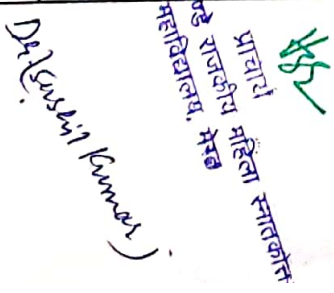 प्राचार्य
राजकीय महिला स्नातकोत्त
महाविद्यालय, मेरठ
Dr (Sushil Kumar)